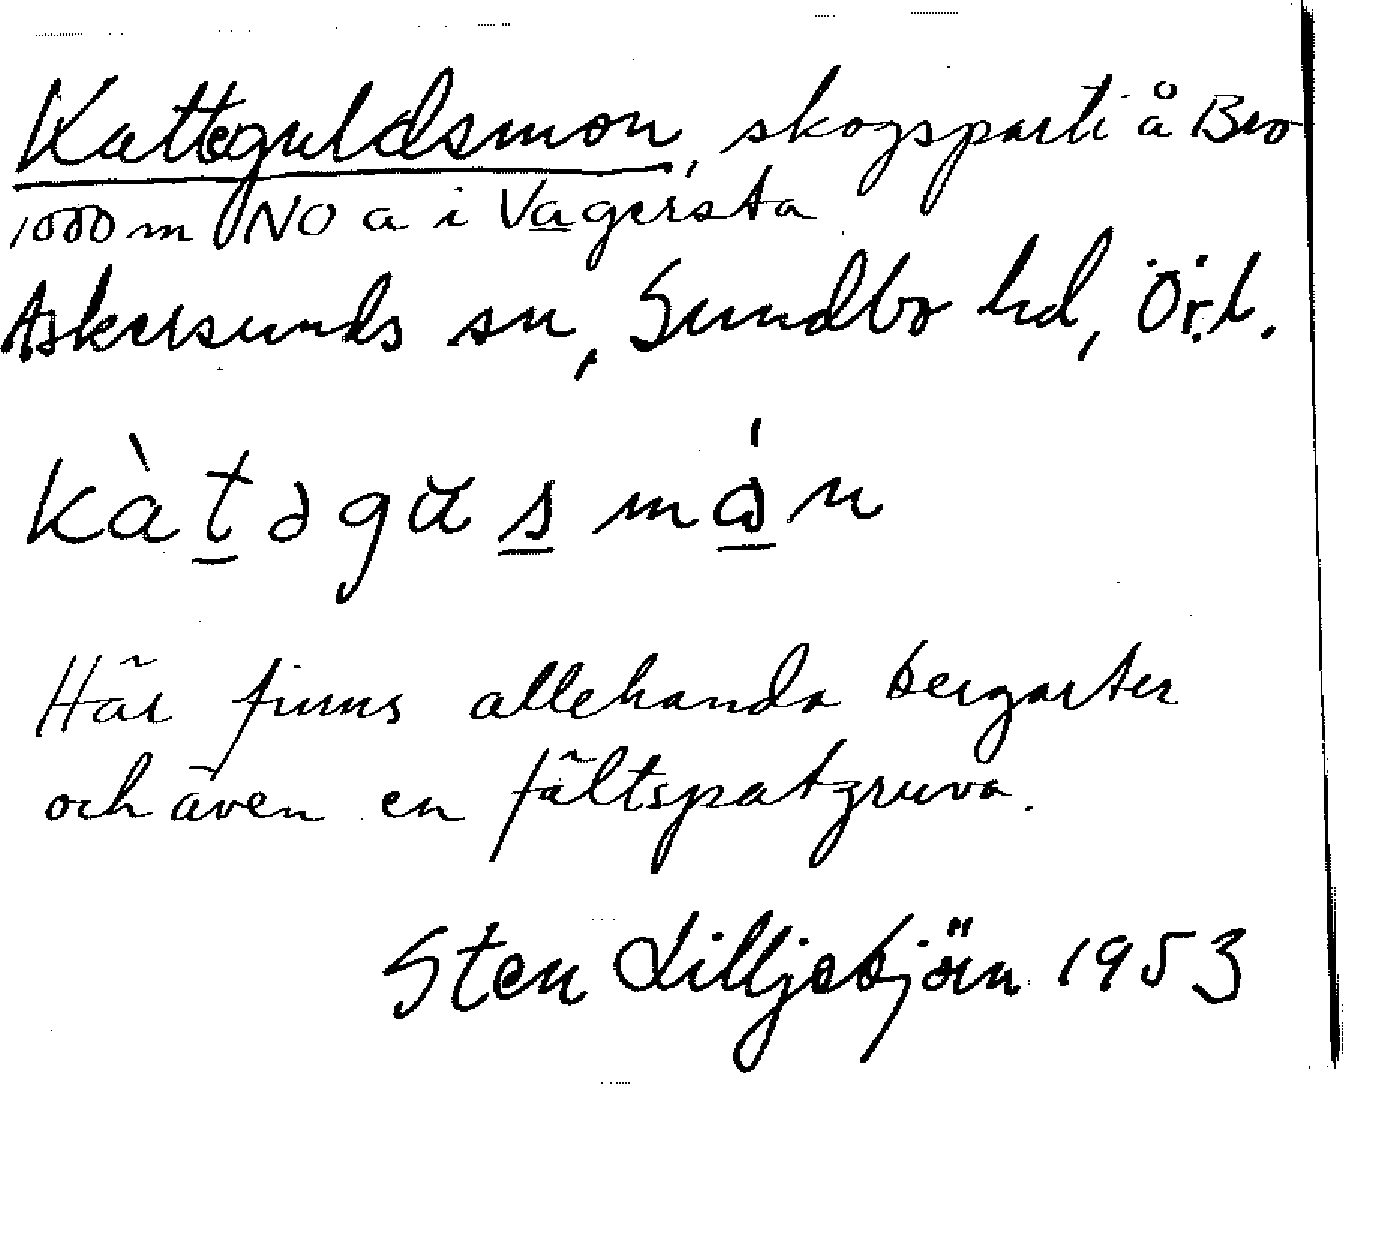 Katteguldsmon, skogsparti å Bro
1000 m NO a i Vagersta
Askersunds sn, Sundbo hd, Ör.l.
kàtəgŭsmån
Här finns allehanda bergarter
och även en fältspatgruva.
Sten Lilljebjörn 1953